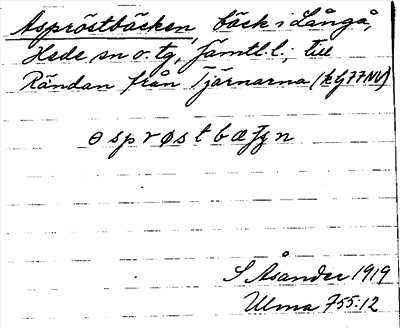 Aspröstbäcken, bäck i Långå,
Hede sn o. tg, Jämtl. l.; till
Rändan från Tjärnarna (kbl 77NV)
S Åsander 1919
Ulma 755:12